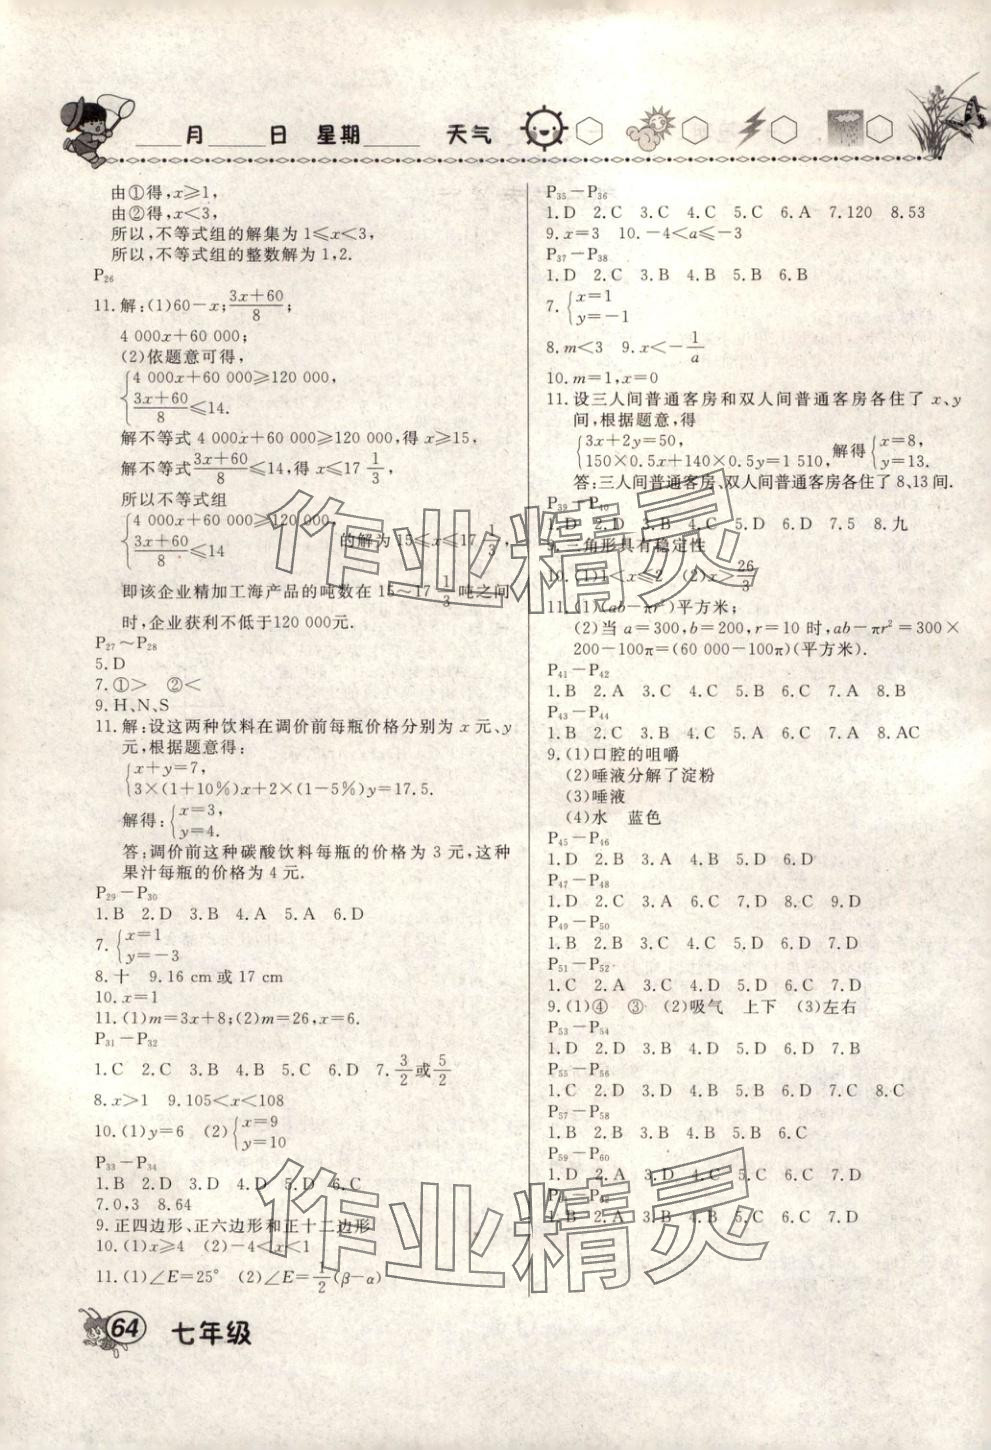 月 日 星期 天气
由①得,x≥1,
由②得,x<3,
所以,不等式组的解集为1≤x<3,
所以,不等式组的整数解为1,2.
P26
11.解:(1)60-x;(3x+60)/8;
4 000x+60 000;
(2)依题意可得,
{4 000x+60 000≥120 000,
(3x+60)/8≤14.
解不等式4 000x+60 000≥120 000,得x≥15,
解不等式(3x+60)/8≤14,得x≤17 1/3,
所以不等式组
{4 000x+60 000≥120 000,
(3x+60)/8≤14 的解为15≤x≤17 1/3,
即该企业精加工海产品的吨数在15~17 1/3吨之间
时,企业获利不低于120 000元.
P27~P28
5.D
7.①> ②<
9.H、N、S
11.解:设这两种饮料在调价前每瓶价格分别为x元、y
元,根据题意得:
{x+y=7,
3×(1+10%)x+2×(1-5%)y=17.5.
解得:{x=3,
y=4.
答:调价前这种碳酸饮料每瓶的价格为3元,这种
果汁每瓶的价格为4元.
P29-P30
1.B 2.D 3.B 4.A 5.A 6.D
7.{x=1
y=-3
8.十 9.16 cm或17 cm
10.x=1
11.(1)m=3x+8;(2)m=26,x=6.
P31-P32
1.C 2.C 3.B 4.B 5.C 6.D 7.3/2或5/2
8.x>1 9.105<x<108
10.(1)y=6 (2){x=9
y=10
P33-P34
1.B 2.D 3.D 4.D 5.D 6.C
7.0,3 8.64
9.正四边形、正六边形和正十二边形
10.(1)x≥4 (2)-4<x<1
11.(1)∠E=25° (2)∠E=1/2(β-α)
64 七年级
P35-P36
1.D 2.C 3.C 4.C 5.C 6.A 7.120 8.53
9.x=3 10.-4<a≤-3
P37-P38
1.D 2.C 3.B 4.B 5.B 6.B
7.{x=1
y=-1
8.m<3 9.x<-1/a
10.m=1,x=0
11.设三人间普通客房和双人间普通客房各住了x、y
间,根据题意,得
{3x+2y=50,
150×0.5x+140×0.5y=1 510, 解得{x=8,
y=13.
答:三人间普通客房、双人间普通客房各住了8、13间.
P39-P40
1.D 2.D 3.B 4.C 5.D 6.D 7.5 8.九
9.三角形具有稳定性
10.(1)1<x≤2 (2)x>26/3
11.(1)(ab-πr²)平方米;
(2)当a=300,b=200,r=10时,ab-πr²=300×
200-100π=(60 000-100π)(平方米).
P41-P42
1.B 2.A 3.C 4.C 5.B 6.C 7.A 8.B
P43-P44
1.B 2.C 3.B 4.C 5.A 6.C 7.A 8.AC
9.(1)口腔的咀嚼
(2)唾液分解了淀粉
(3)唾液
(4)水 蓝色
P45-P46
1.D 2.B 3.A 4.B 5.D 6.D
P47-P48
1.D 2.C 3.A 6.C 7.D 8.C 9.D
P49-P50
1.B 2.B 3.C 4.C 5.D 6.D 7.D
P51-P52
1.C 2.A 3.C 4.C 5.D 6.C 7.D 8.A
9.(1)④ ③ (2)吸气 上下 (3)左右
P53-P54
1.D 2.D 3.B 4.D 5.D 6.D 7.B
P55-P56
1.C 2.D 3.D 4.B 5.D 6.C 7.C 8.C
P57-P58
1.B 2.B 3.B 4.B 5.B 6.C
P59-P60
1.D 2.A 3.D 4.C 5.C 6.C 7.D
1.B 2.A 3.B 4.B 5.C 6.C 7.D
作业精灵
作业精灵